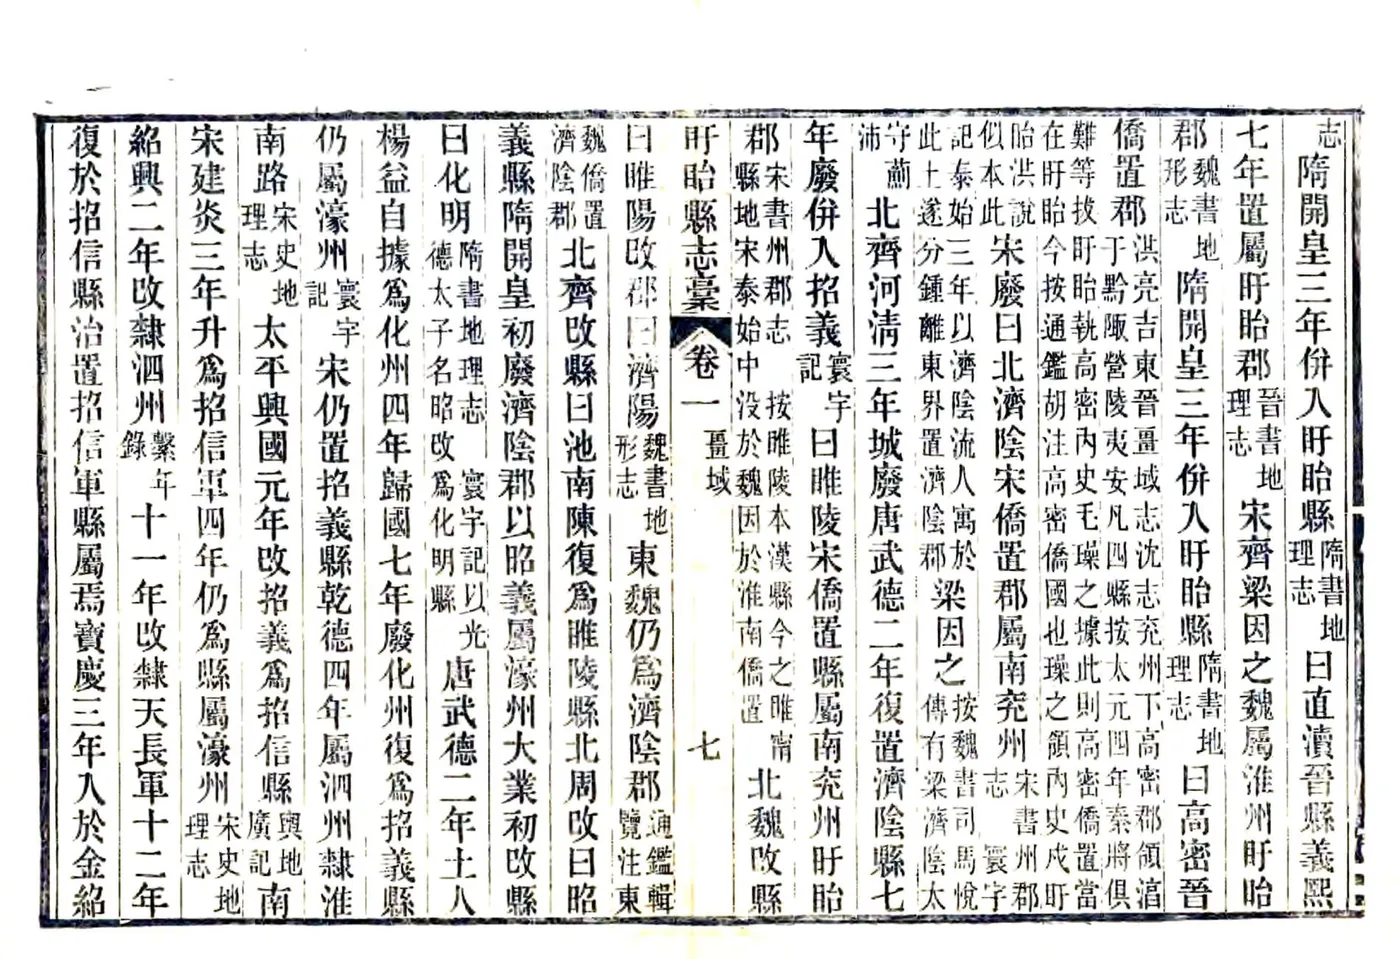 志隋開皇三年併入盱眙縣隋書地理志曰直瀆晉縣義熙
七年置屬盱眙郡晉書地理志宋齊梁因之魏屬淮州盱眙
郡魏書地形志隋開皇三年併入盱眙縣隋書地理志曰高密晉
僑置郡洪亮吉東晉畺域志沈志兗州下高密郡領滈于黔陬營陵夷安凡四縣按太元四年秦將俱
難等拔盱眙執高密內史毛璪之據此則高密僑置當在盱眙今按通鑑胡注高密僑國也璪之領內史戍盱
眙洪說似本此宋廢曰北濟陰宋僑置郡屬南兗州宋書州郡志 寰宇
記泰始三年以濟陰流人寓於此土遂分鍾離東界置濟陰郡梁因之按魏書司馬悅傳有梁濟陰太
守沛北齊河清三年城廢唐武德二年復置濟陰縣七
年廢併入招義寰宇記曰睢陵宋僑置縣屬南兗州盱眙
郡宋書州郡志 按睢陵本漢縣今之睢甯縣地宋泰始中没於魏因於淮南僑置北魏改縣
盱眙縣志稾 卷一 畺域 七
曰睢陽改郡曰濟陽魏書地形志東魏仍爲濟陰郡通鑑輯覽注東
魏僑置濟陰郡北齊改縣曰池南陳復爲睢陵縣北周改曰昭
義縣隋開皇初廢濟陰郡以昭義屬濠州大業初改縣
曰化明隋書地理志 寰宇記以光德太子名昭改爲化明縣唐武德二年土人
楊益自據爲化州四年歸國七年廢化州復爲招義縣
仍屬濠州寰宇記宋仍置招義縣乾德四年屬泗州隸淮
南路宋史地理志太平興國元年改招義爲招信縣輿地廣記南
宋建炎三年升爲招信軍四年仍爲縣屬濠州宋史地理志
紹興二年改隸泗州繫年錄十一年改隸天長軍十二年
復於招信縣治置招信軍縣屬焉寶慶三年入於金紹